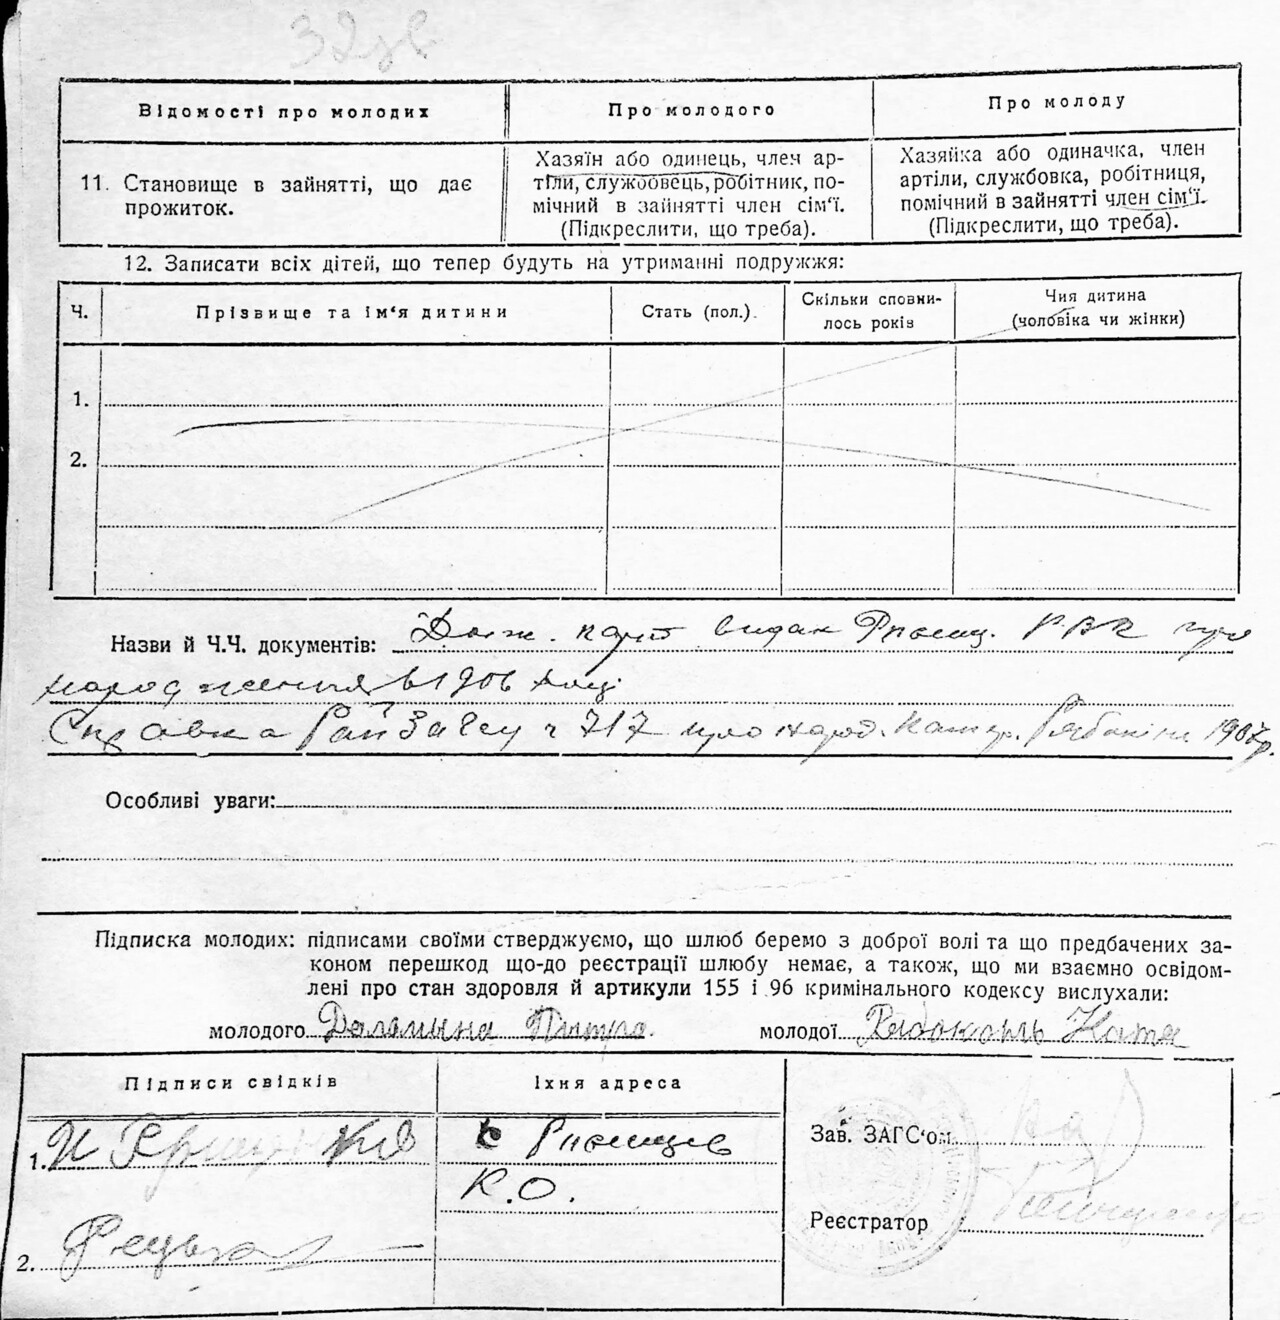 32зв
Відомості про молодих
Про молодого
Про молоду
11. Становище в зайнятті, що дає
прожиток.
Хазяїн або одинець, член ар-
тіли, службовець, робітник, по-
мічний в зайнятті член сім‘ї.
(Підкреслити, що треба).
Хазяйка або одиначка, член
артіли, службовка, робітниця,
помічний в зайнятті член сім‘ї.
(Підкреслити, що треба).
12. Записати всіх дітей, що тепер будуть на утриманні подружжя:
Ч.
Прізвище та ім‘я дитини
Стать (пол.).
Скільки сповни-
лось років
Чия дитина
(чоловіка чи жінки)
1.
2.
Назви й Ч.Ч. документів: видан РВК про
народження в 1906 році
Справка РайЗагсу ч 717 про народ. 1907р.
Особливі уваги:
Підписка молодих: підписами своїми стверджуємо, що шлюб беремо з доброї волі та що предбачених за-
коном перешкод що-до реєстрації шлюбу немає, а також, що ми взаємно освідом-
лені про стан здоровля й артикули 155 і 96 кримінального кодексу вислухали:
молодого
молодої Ната
Підписи свідків
Їхня адреса
1.
К.О.
2.
Зав. ЗАГС‘ом
Реєстратор